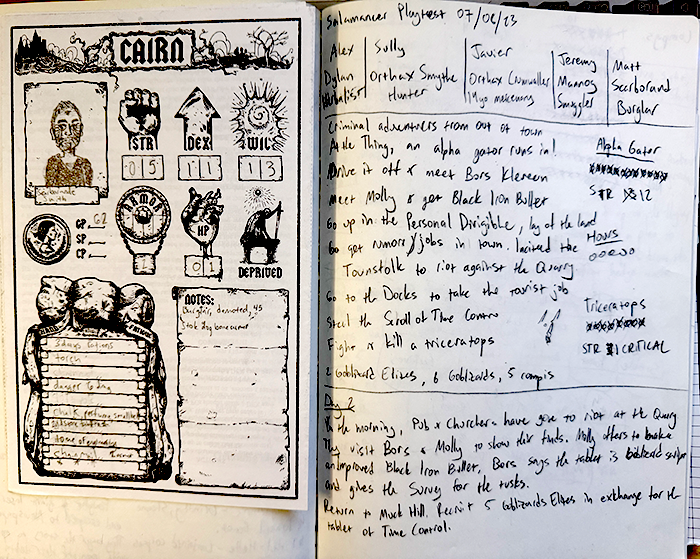 CAIRN
STR
DEX
WIL
05
11
13
Smith
GP 62
SP
CP
ARMOR
HP
0
DEPRIVED
NOTES:
Burglar, demoted, 45
Stole dog bone
3 days rations
torch
dagger
Salamancer Playtest 07/06/23
Alex
Dylan
Herbalist
Sully
Orthax Smythe
Hunter
Javier
Orthax
Jeremy
Mannog
Smuggler
Matt
Scarborand
Burglar
Criminal adventurers from out of town
At the Thing, an alpha gator runs in!
Alpha Gator
Drive it off & meet Bors Klereen
STR 12
Meet Molly & get Black Iron Bullet
Go up in the Personal Dirigible, lay of the land
Go get rumors/jobs in town. Incited the
Hours
Townsfolk to riot against the Quarry
Go to the Docks to take the tourist job
Steal the Scroll of Time Control
Triceratops
Fight & kill a triceratops
STR 1 CRITICAL
2 Goblizard Elites, 6 Goblizards, 5 rompis
Day 2
In the morning, Pub & Church have gone to riot at the Quarry
They visit Bors & Molly to show their finds. Molly offers to make
an improved Black Iron Bullet, Bors says the tablet is goblizard
and gives the Survey for the tusks.
Return to Muck Hill. Recruit 5 Goblizards Elites in exchange for the
tablet of Time Control.